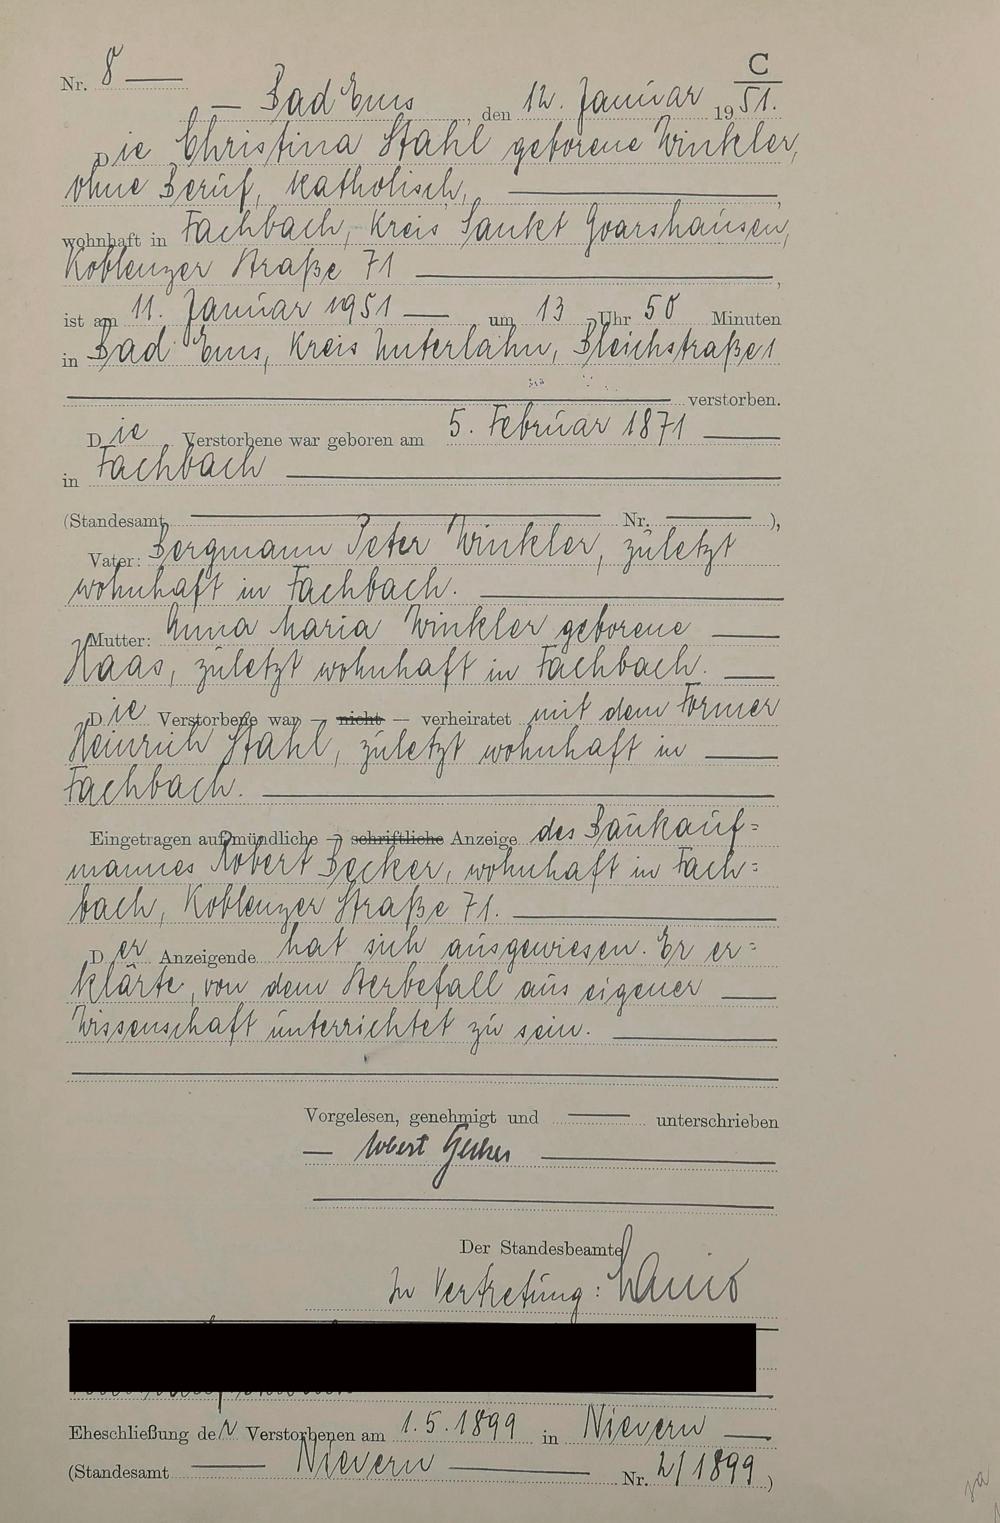 C
Nr. 8
Bad Ems, den 12. Januar 1951.
Die Christina Stahl geborene Winkler,
ohne Beruf, katholisch,
wohnhaft in Fachbach, Kreis Sankt Goarshausen,
Koblenzer Straße 71,
ist am 11. Januar 1951 um 13 Uhr 50 Minuten
in Bad Ems, Kreis Unterlahn, Bleichstraße 1
verstorben.
Die Verstorbene war geboren am 5. Februar 1871
in Fachbach
(Standesamt Nr. ),
Vater: Bergmann Peter Winkler, zuletzt
wohnhaft in Fachbach.
Mutter: Anna Maria Winkler geborene
Haas, zuletzt wohnhaft in Fachbach.
Die Verstorbene war — nicht — verheiratet mit dem Former
Heinrich Stahl, zuletzt wohnhaft in
Fachbach.
Eingetragen auf mündliche — schriftliche Anzeige des Baukauf=
mannes Robert Becker, wohnhaft in Fach=
bach, Koblenzer Straße 71.
Der Anzeigende hat sich ausgewiesen. Er er=
klärte, von dem Sterbefall aus eigener
Wissenschaft unterrichtet zu sein.
Vorgelesen, genehmigt und unterschrieben
Robert
Der Standesbeamte
In Vertretung:
Eheschließung der Verstorbenen am 1.5.1899 in Nievern
(Standesamt Nievern Nr. 2/1899)